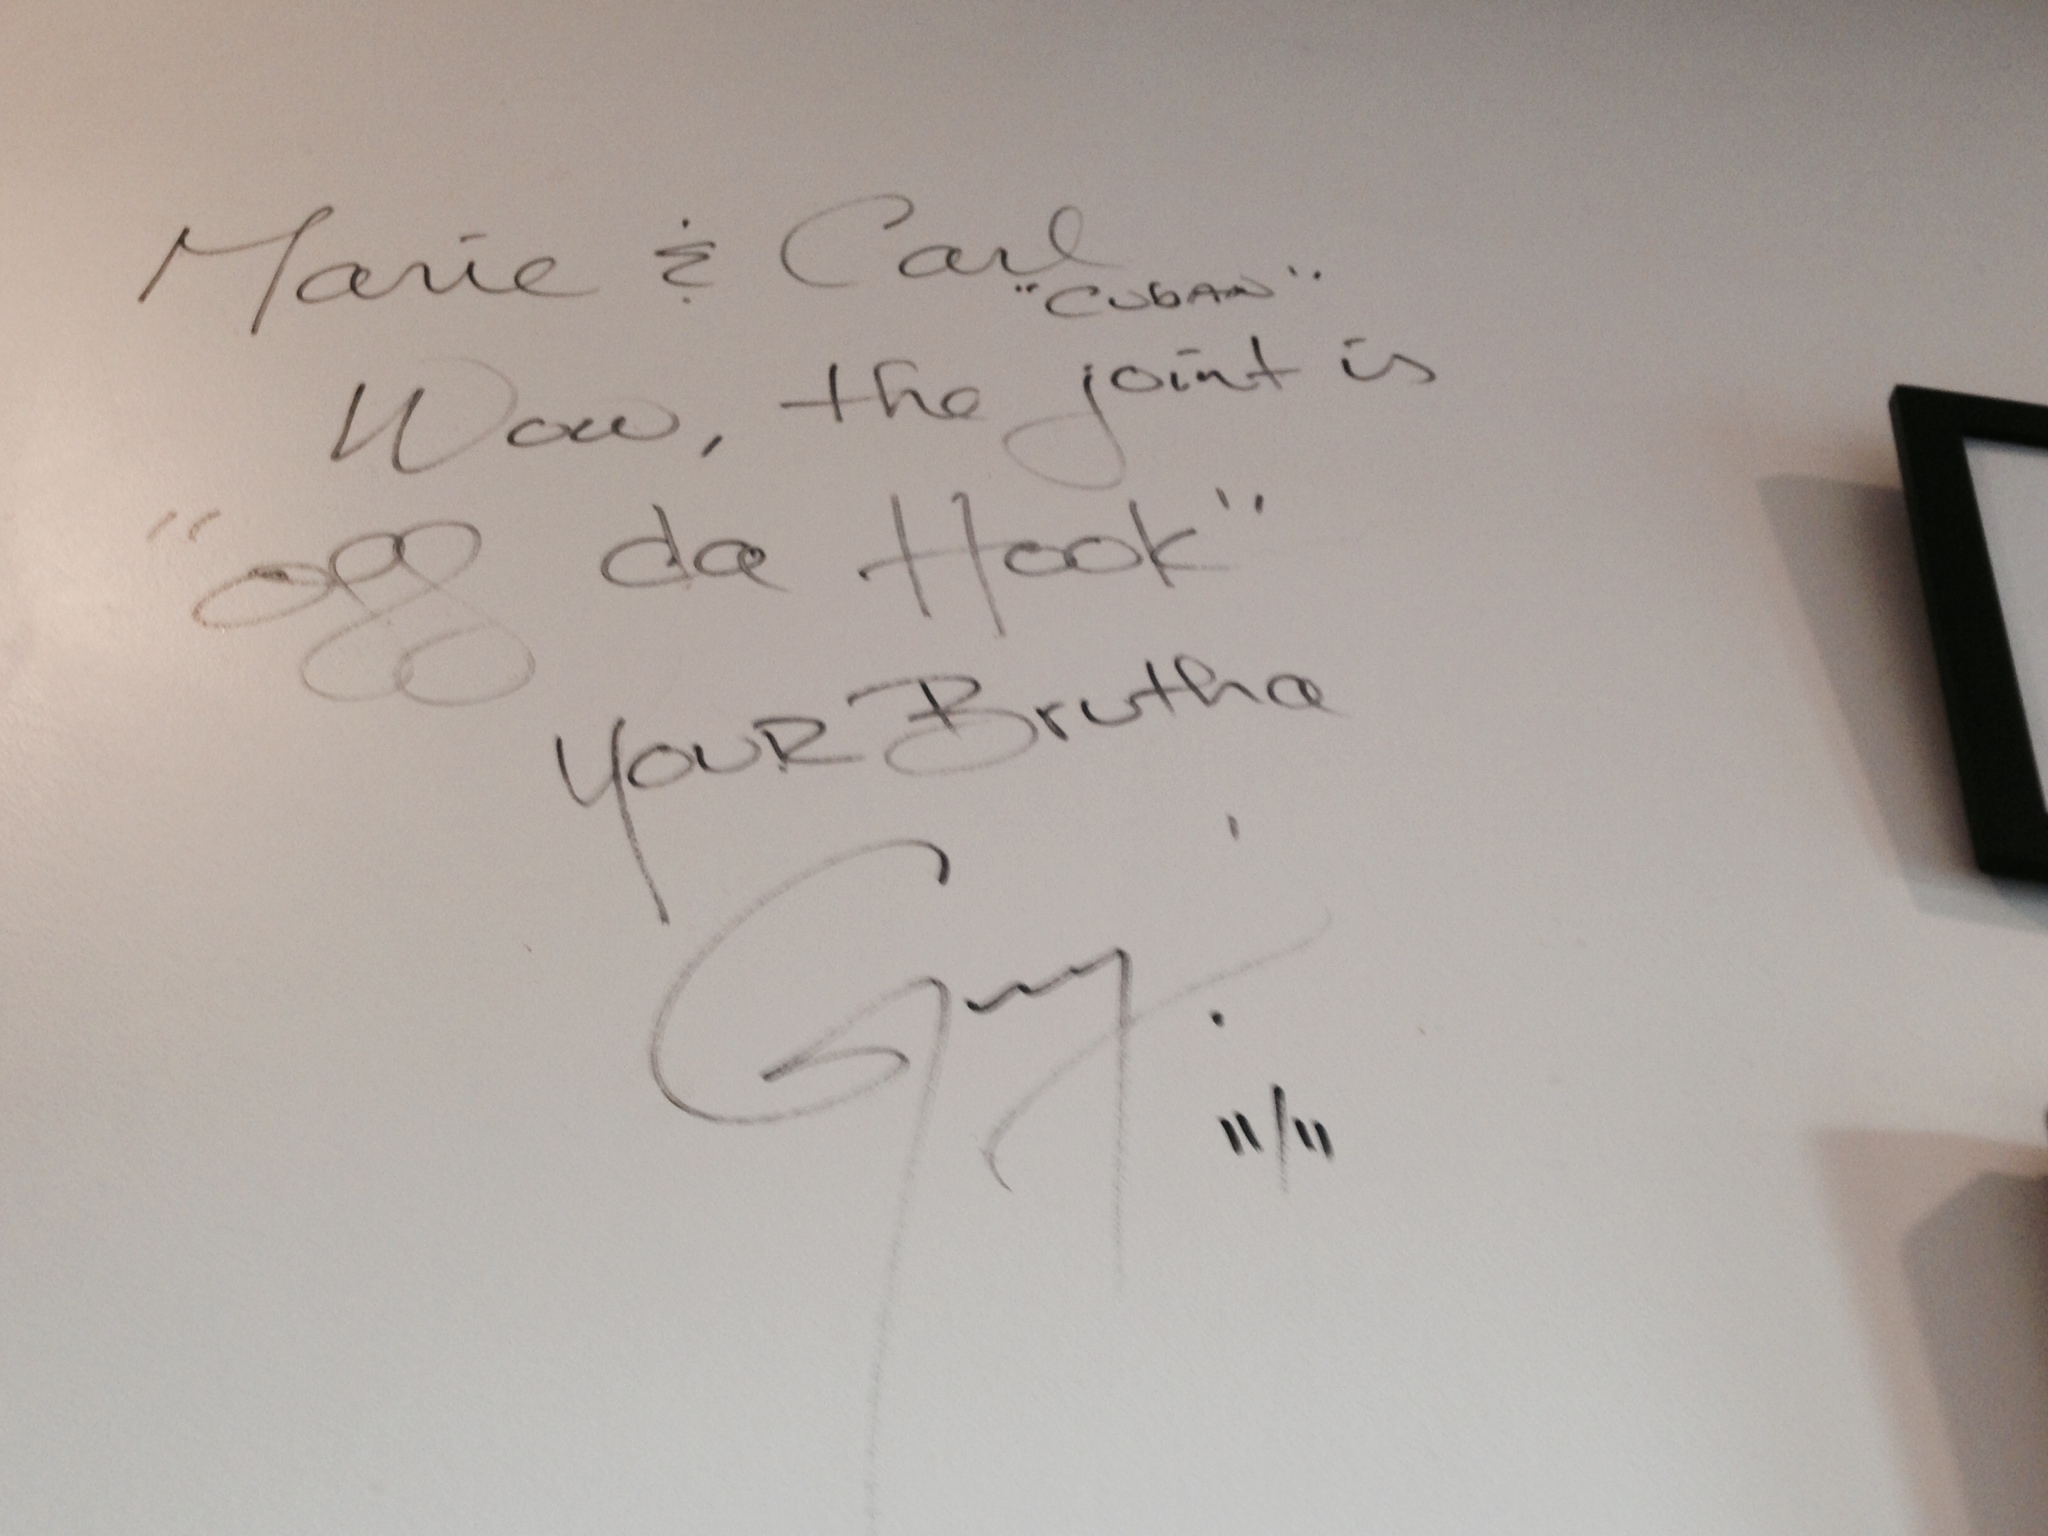 Marie & Carl
"CUBAN"
Wow, the joint is
"off da Hook"
YOUR Brutha
Guy
11/11